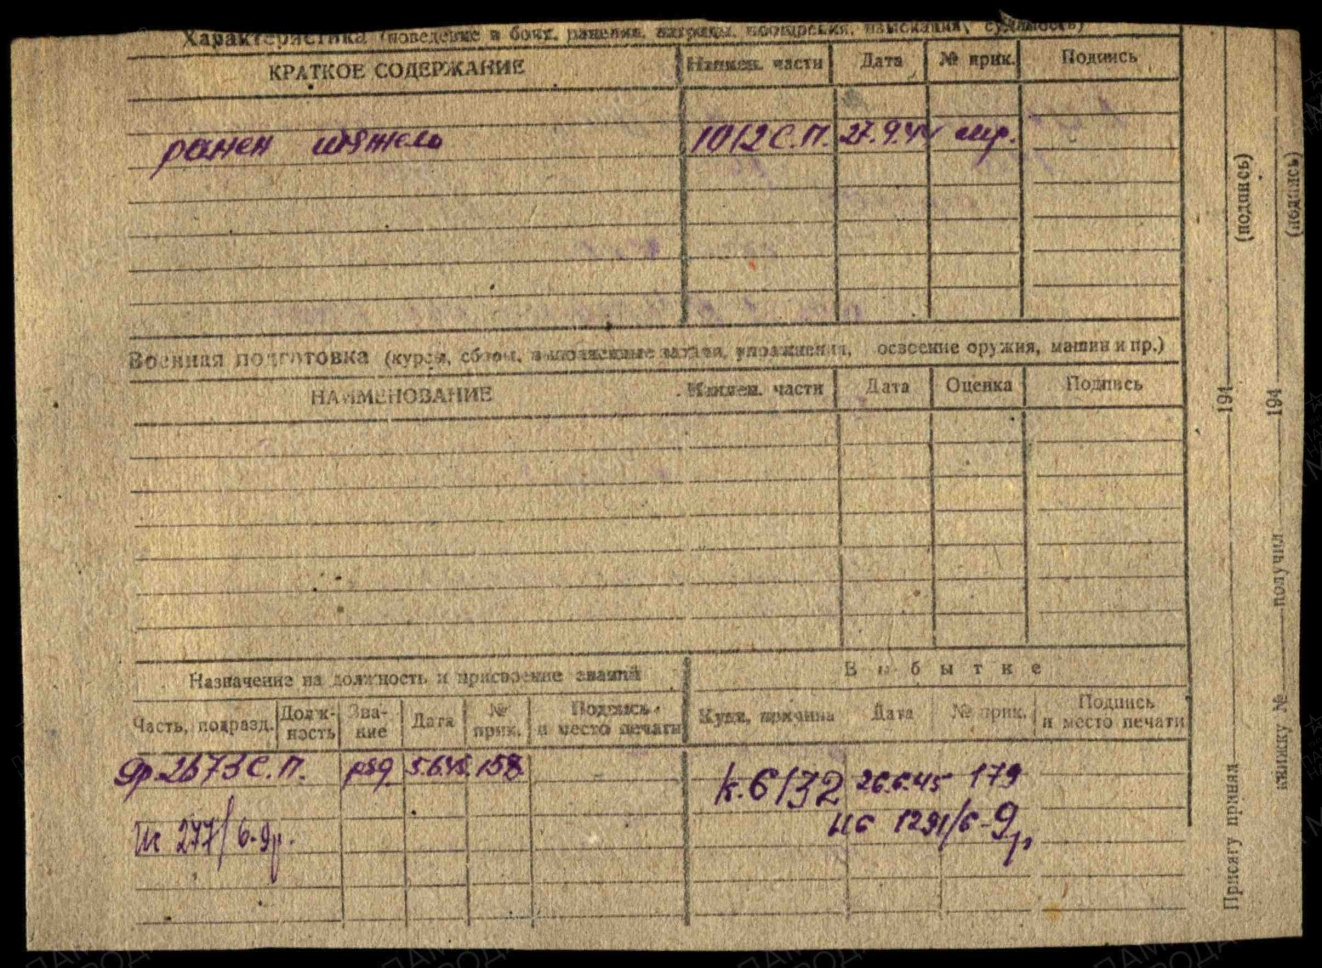 Характеристика (поведение в бою, ранения, награды, поощрения, взыскания, судимость)
КРАТКОЕ СОДЕРЖАНИЕ Наимен. части Дата № прик. Подпись
ранен тяжело 1012 С.П. 27.9.44
Военная подготовка (курсы, сборы, выполненные задачи, упражнения, освоение оружия, машин и пр.)
НАИМЕНОВАНИЕ Наимен. части Дата Оценка Подпись
Назначение на должность и присвоение званий
О выбытке
Часть, подразд. Долж-ность Зва-ние Дата № прик. Подпись и место печати Куда, причина Дата № прик. Подпись и место печати
др. 2673 С.П. ряд 5.6.45. 158
к. 6132 26.6.45 179
1291/6-9
277/6-
Присягу принял 194 (подпись)
книжку № получил 194 (подпись)